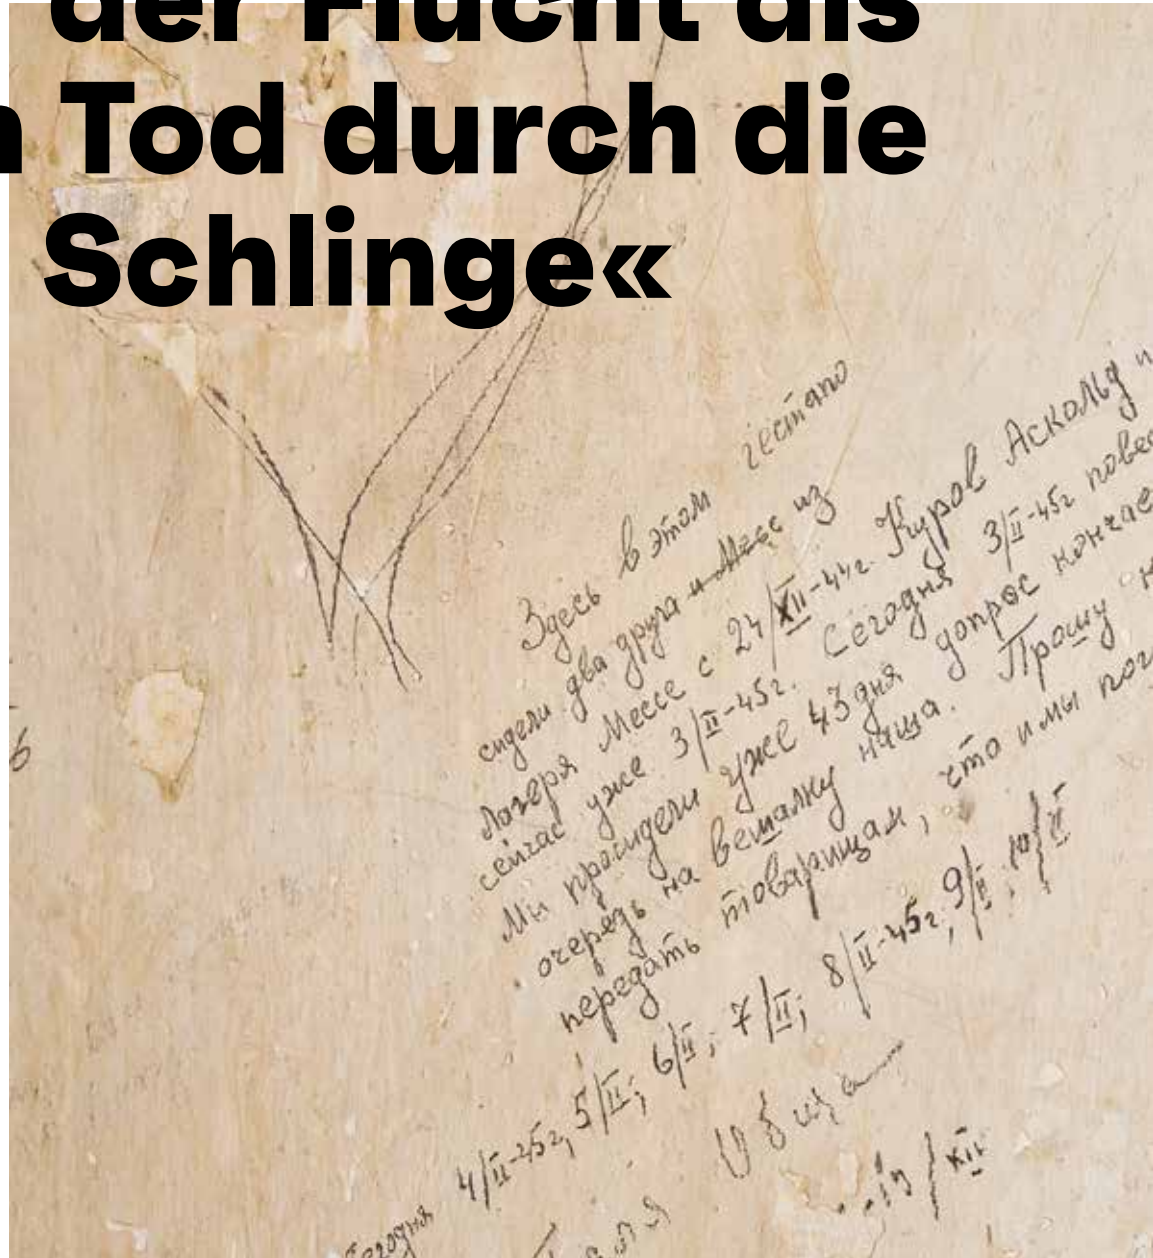 der Flucht als
n Tod durch die
Schlinge«
Здесь в этом гестапо
сидели два друга и Месс из
Лагеря Мессе с 24/XII-44г. Куров Аскольд и
сейчас уже 3/II-45г. Сегодня 3/II-45г повес
Мы просидели уже 43 дня допрос кончае
очередь на вешалку наша. Прошу
передать товарищам, что и мы пог
Сегодня 4/II-45г, 5/II; 6/II; 7/II; 8/II-45г, 9/II; 10/II